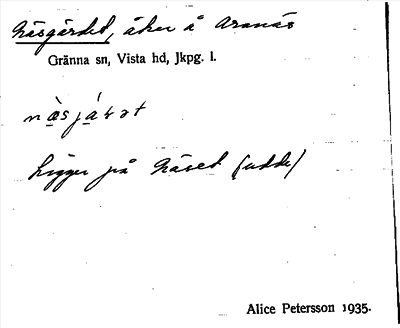 Näsgärdet, åker å Aranäs
Gränna sn, Vista hd, Jkpg. l.
Ligger på Näset (udde)
Alice Petersson 1935.